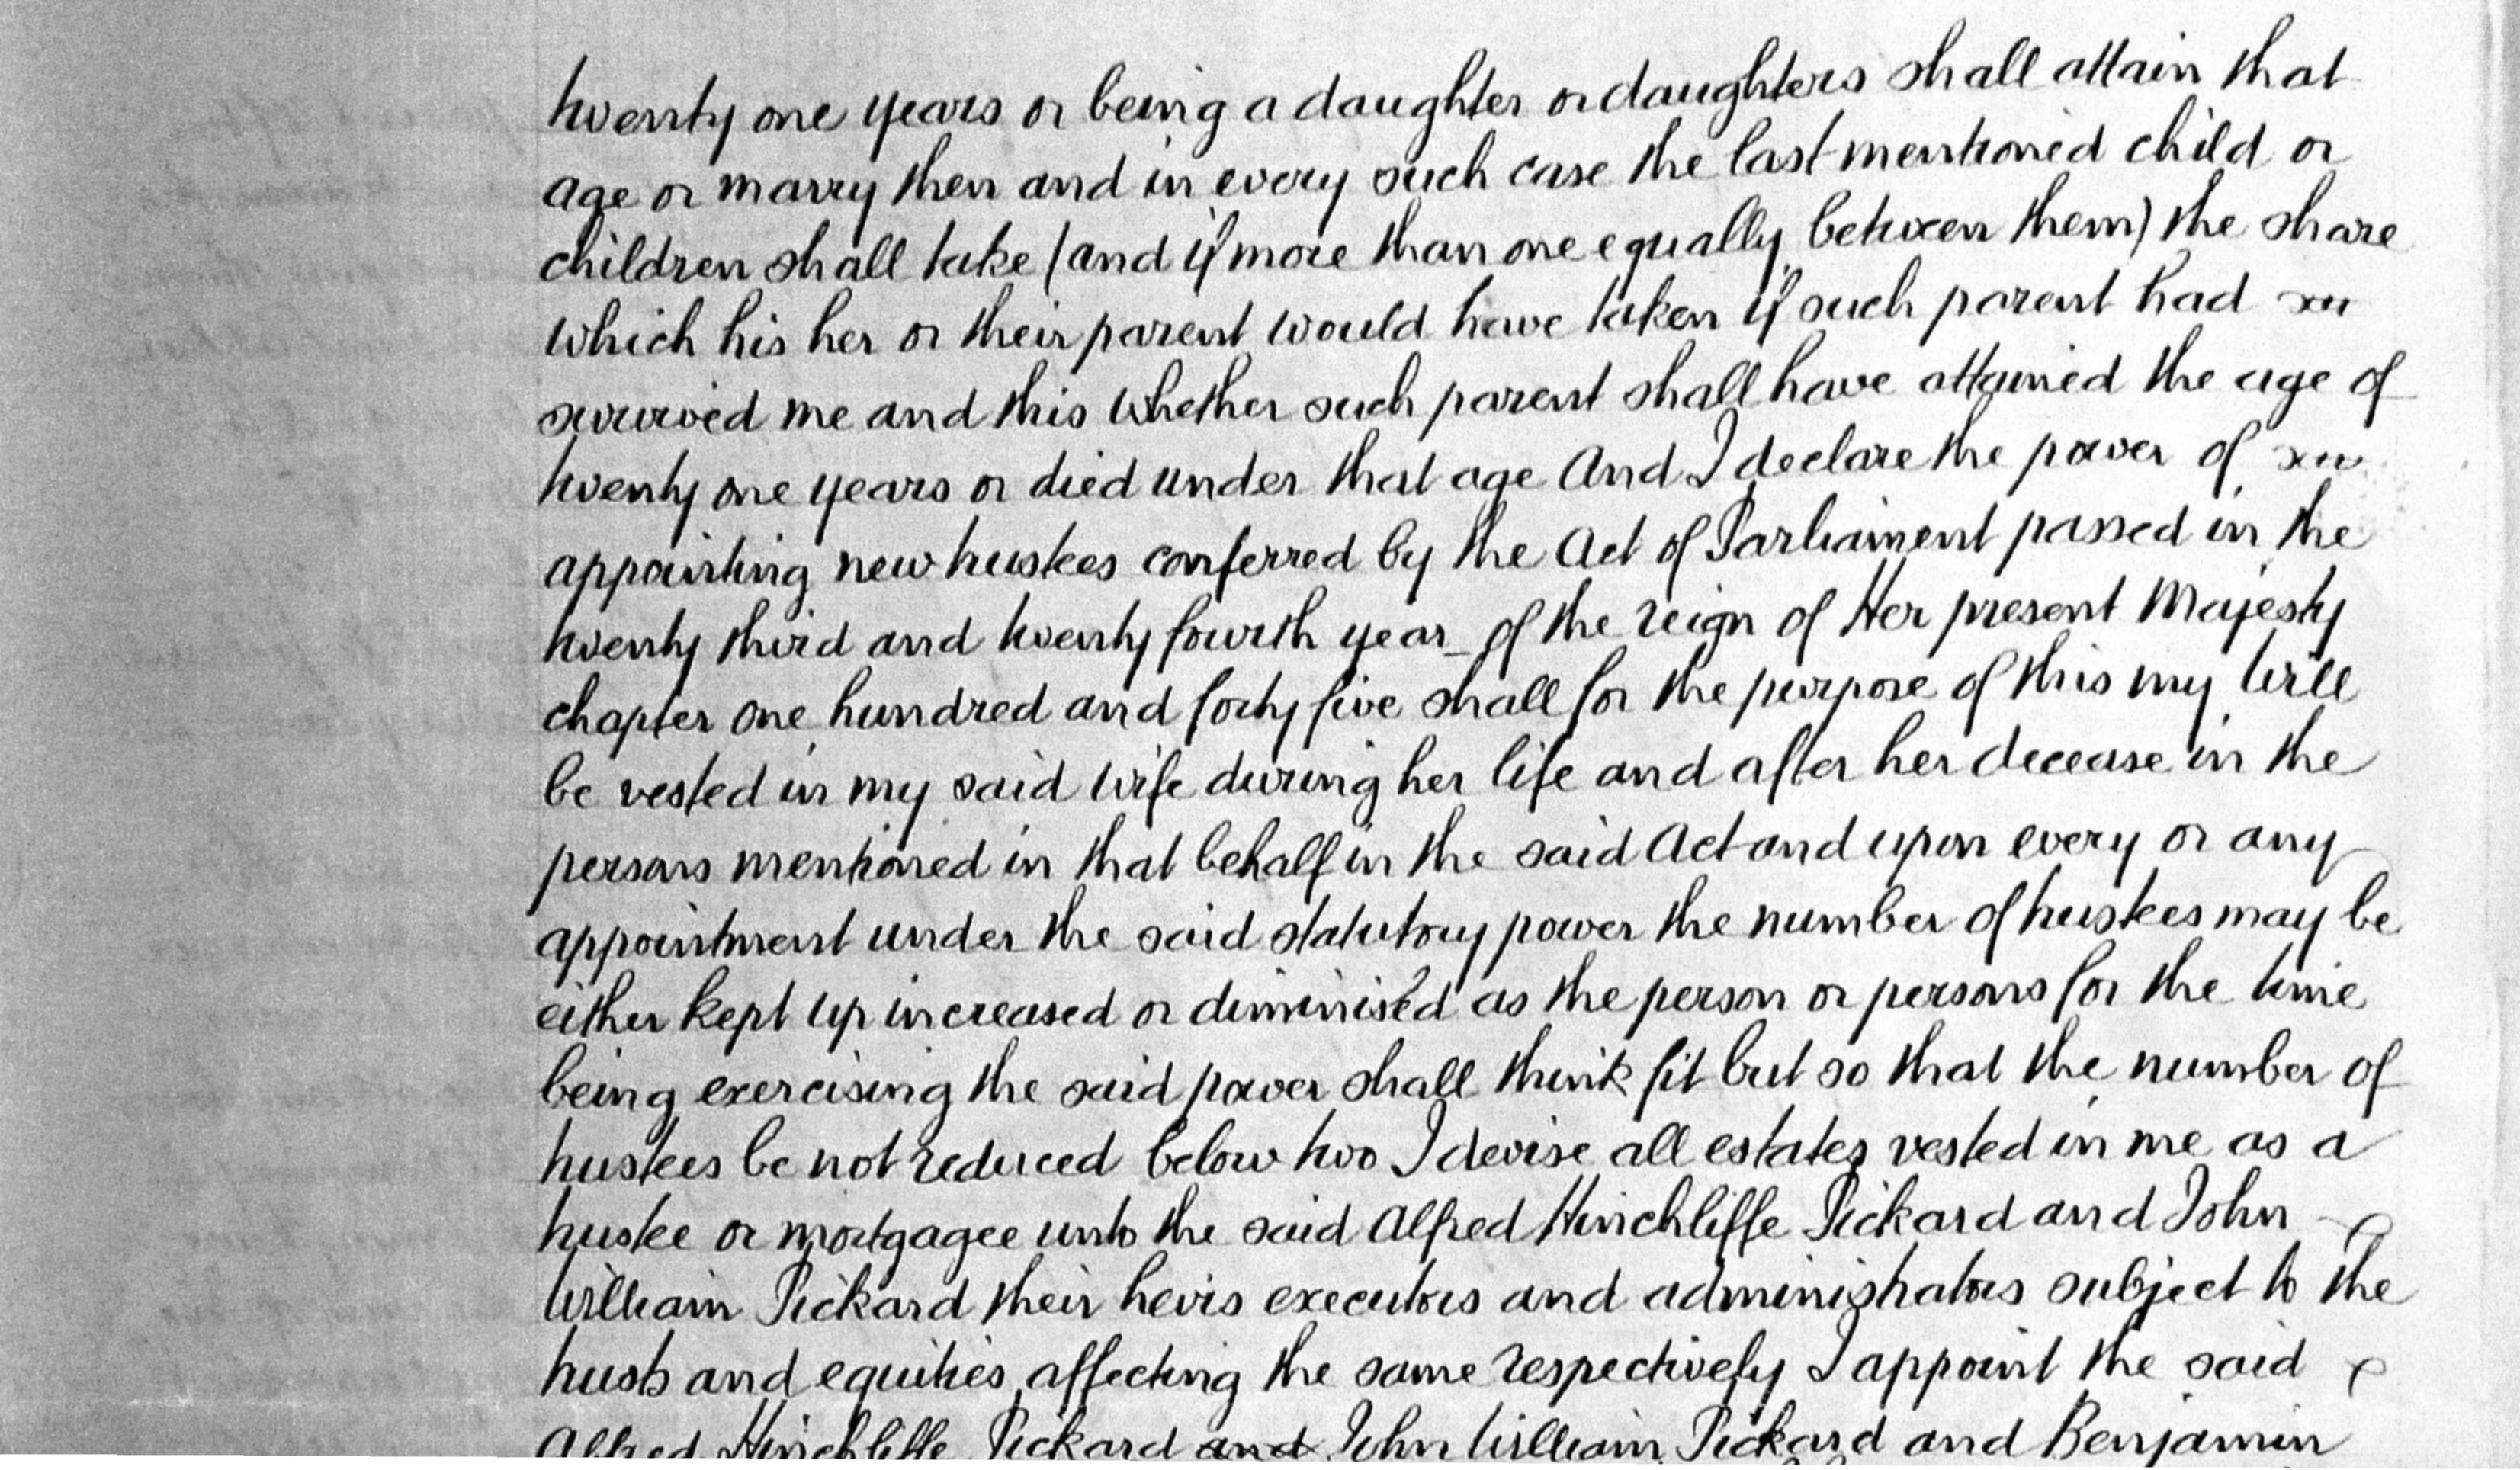 twenty one years or being a daughter or daughters shall attain that
age or marry then and in every such case the last mentioned child or
children shall take (and if more than one equally between them) the share
which his her or their parent would have taken if such parent had
survived me and this whether such parent shall have attained the age of
twenty one years or died under that age And I declare the power of
appointing new trustees conferred by the Act of Parliament passed in the
twenty third and twenty fourth year of the reign of Her present Majesty
chapter one hundred and forty five shall for the purpose of this my Will
be vested in my said Wife during her life and after her decease in the
persons mentioned in that behalf in the said Act and upon every or any
appointment under the said statutory power the number of trustees may be
either kept up increased or diminis'ed as the person or persons for the time
being exercising the said power shall think fit but so that the number of
trustees be not reduced below two I devise all estates vested in me as a
trustee or mortgagee unto the said Alfred Hinchliffe Pickard and John
William Pickard their heirs executors and administrators subject to the
trusts and equities affecting the same respectively I appoint the said
Alfred Hinchliffe Pickard and John William Pickard and Benjamin